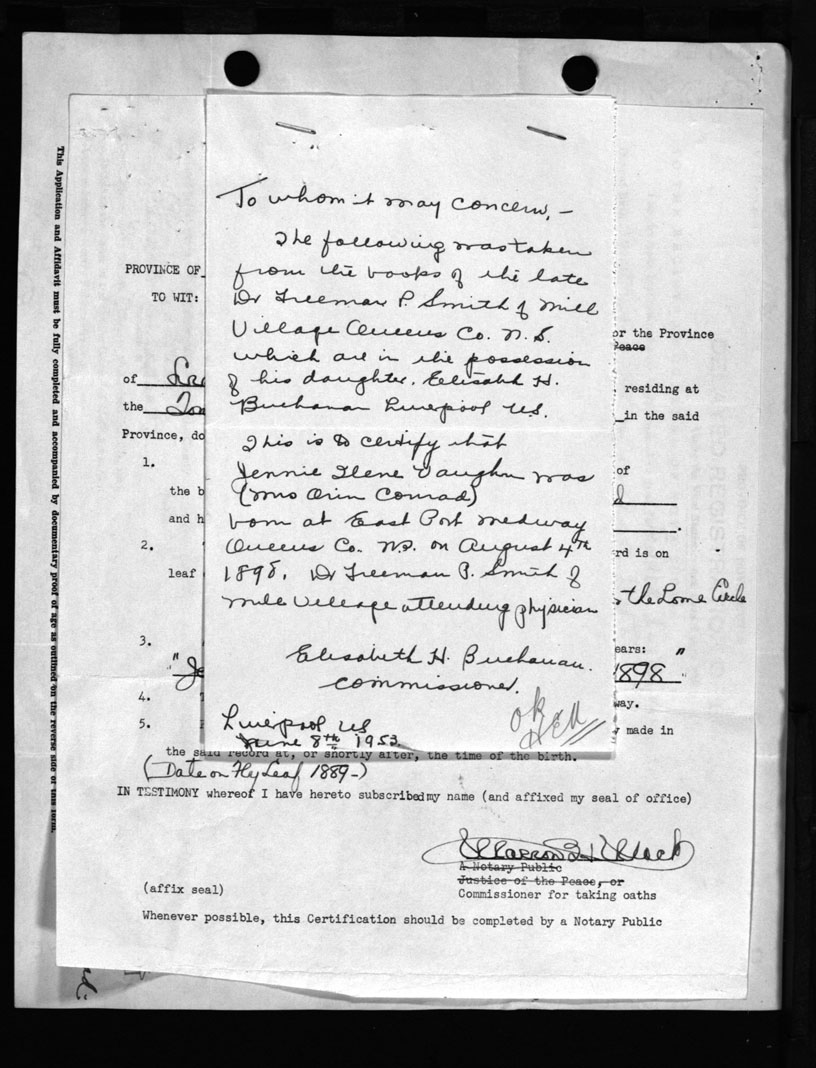 To whom it may concern, –
The following was taken
from the books of the late
Dr Freeman P. Smith of Mill
Village Queens Co. N.S.
which are in the possession
of his daughter. Elisabeth H.
Buchanan Liverpool N.S.
This is to certify that
Jennie Ilene Vaughn was
(Mrs Orin Conrad)
born at East Port Medway
Queens Co. N.S. on August 4th
1898. Dr Freeman P. Smith of
Mill Village attending physician
Elisabeth H. Buchanan.
Commissioner.
Liverpool NS
June 8th 1953.
ok
This Application and Affidavit must be fully completed and accompanied by documentary proof of age as outlined on the reverse side of this form.
PROVINCE OF
TO WIT:
or the Province
Peace
of
residing at
the
in the said
Province, do
1.
of
the b
d
and h
2.
rd is on
leaf
the Lorne Circle
3.
ears:
"Je
1898"
4.
way.
5.
made in
the said record at, or shortly after, the time of the birth.
(Date on Fly Leaf 1889-)
IN TESTIMONY whereof I have hereto subscribed my name (and affixed my seal of office)
A Notary Public
Justice of the Peace, or
(affix seal)
Commissioner for taking oaths
Whenever possible, this Certification should be completed by a Notary Public